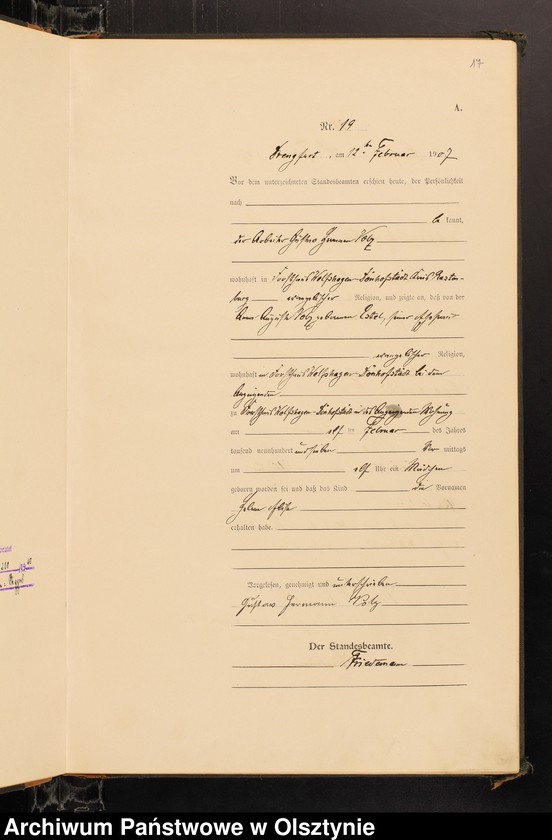 17
A.
Nr. 19
Drengfurt, am 12ten Februar 1907
Vor dem unterzeichneten Standesbeamten erschien heute, der Persönlichkeit
nach
be kannt,
der Arbeiter Gustav Hermann Volz
wohnhaft in Forsthaus Wolfshagen Dönhofstädt Kreis Rasten-
burg evangelischer Religion, und zeigte an, daß von der
Auguste Volz geborenen Estel, seiner Ehefrau
evangelischer Religion,
wohnhaft in Forsthaus Wolfshagen Dönhofstädt bei dem
Anzeigenden
zu Forsthaus Wolfshagen Dönhofstädt in des Anzeigenden Wohnung
am elf ten Februar des Jahres
tausend neunhundert und sieben Vor mittags
um elf Uhr ein Mädchen
geboren worden sei und daß das Kind die Vornamen
erhalten habe.
Vorgelesen, genehmigt und unterschrieben
Gustav Hermann Volz
Der Standesbeamte.
Friedemann
Archiwum Państwowe w Olsztynie